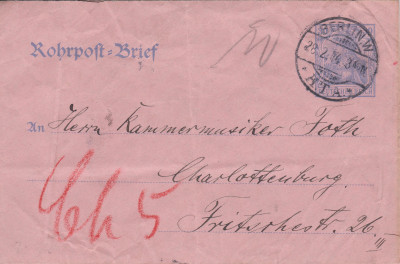 Rohrpost-Brief
BERLIN W
An Herrn Kammermusiker Foth
Charlottenburg.
Fritschestr. 26. III
Ch 5